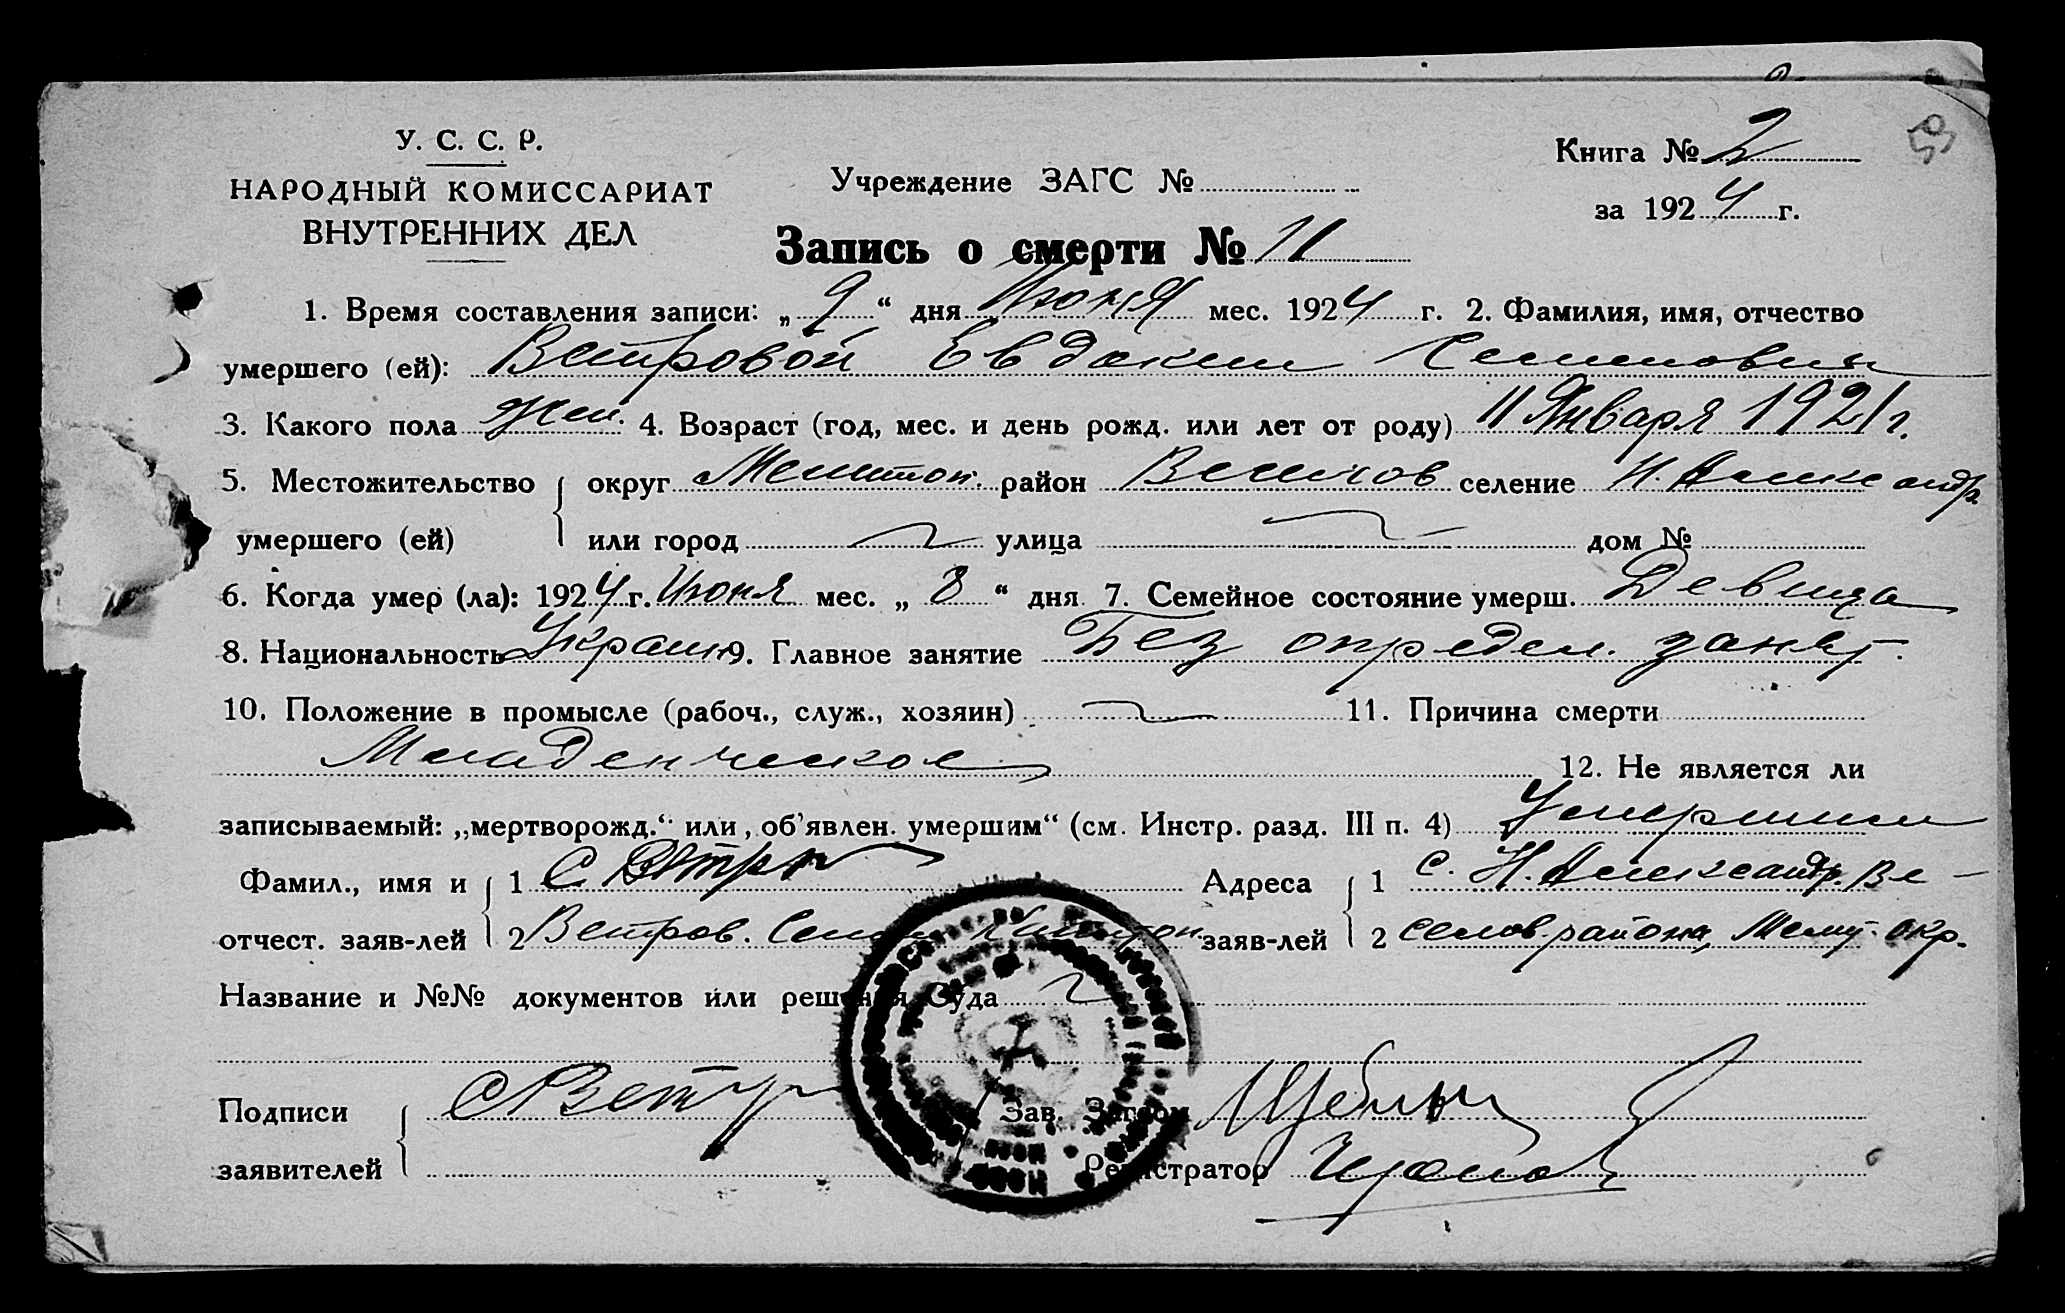 У. С. С. Р.
НАРОДНЫЙ КОМИССАРИАТ
ВНУТРЕННИХ ДЕЛ
Учреждение ЗАГС №
Книга № 2
за 1924 г.
59
Запись о смерти № 11
1. Время составления записи: „ 9 “ дня Июня мес. 1924 г. 2. Фамилия, имя, отчество
умершего (ей): Ветровой Евдокии Семеновны
3. Какого пола жен. 4. Возраст (год, мес. и день рожд. или лет от роду) 11 Января 1921 г.
5. Местожительство округ Мелитоп. район Веселов селение Н. Александр
умершего (ей) или город улица дом №
6. Когда умер (ла): 1924 г. Июня мес. „ 8 “ дня 7. Семейное состояние умерш. Девица
8. Национальность Украин 9. Главное занятие Без определ. занят.
10. Положение в промысле (рабоч., служ., хозяин) 11. Причина смерти
Младенческое 12. Не является ли
записываемый: „мертворожд.“ или „об’явлен. умершим“ (см. Инстр. разд. III п. 4) Умершим
Фамил., имя и 1 С Ветр Адреса 1 с. Н. Александр. Ве-
отчест. заяв-лей 2 Ветров. заяв-лей 2 селов. района, Мелит. окр.
Название и №№ документов или решения Суда
Подписи С Ветр Зав. Загсом
заявителей Регистратор